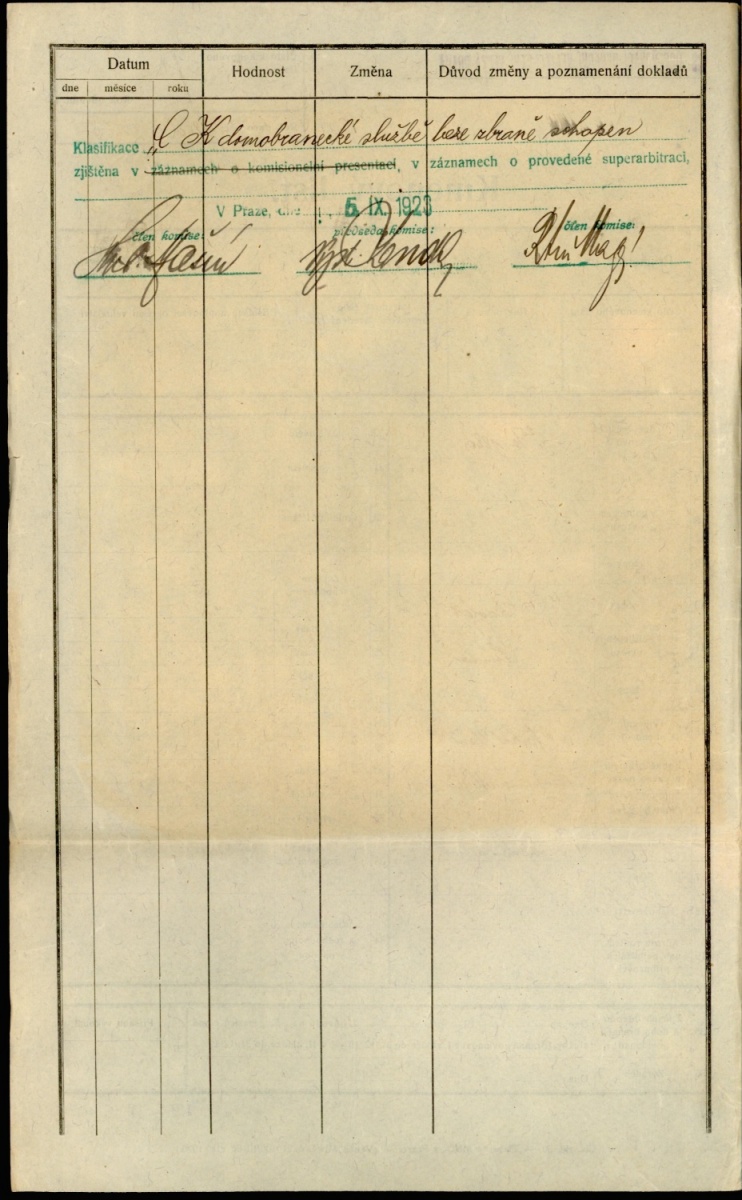 Datum
Hodnost
Změna
Důvod změny a poznamenání dokladů
dne měsíce roku
Klasifikace „C K domobranecké službě beze zbraně schopen
zjištěna v záznamech o komisionelní presentaci, v záznamech o provedené superarbitraci,
V Praze, dne 5. IX. 1923
člen komise:
předseda komise:
člen komise: